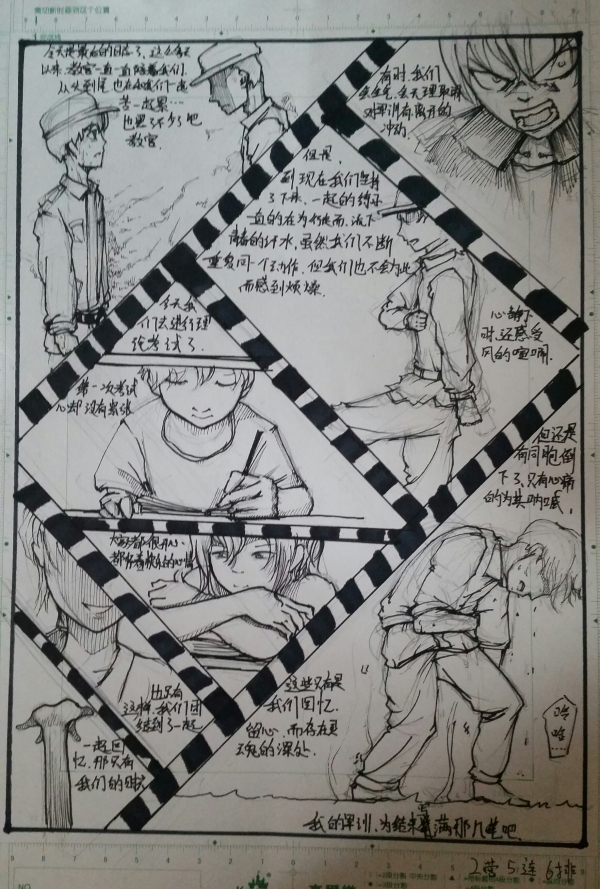 今天是最后的日子了,这么多天
以来,教官一直一直陪着我们.
从头到尾也在和我们一起
苦一起累…
也累了不少了吧
教官.
有时,我们
会生气,会无理取闹
对军训有离开的
冲动.
但是,
到现在我们坚持
了下来.一起的练习
一直的在为彼此而,流下
青春的汗水,虽然我们不断
重复同一个动作,但我们也不会为此
而感到烦燥.
今天我
们去进行理
论考试了.
第一次考试
心却没有紧张
心静下
时,还感受
风的喧哗.
但还是
有同胞倒
下了,只有心痛
的为其呐喊,
大家都很开心.
都有着快乐的心情
也只有
这样,我们团
结到了一起
这些只有是
我们回忆.
留心,而存在灵
魂的深处.
一起回
忆.那只有
我们的
哈
哈
……
我的军训,为结束 满那几笔吧
2营5连6排